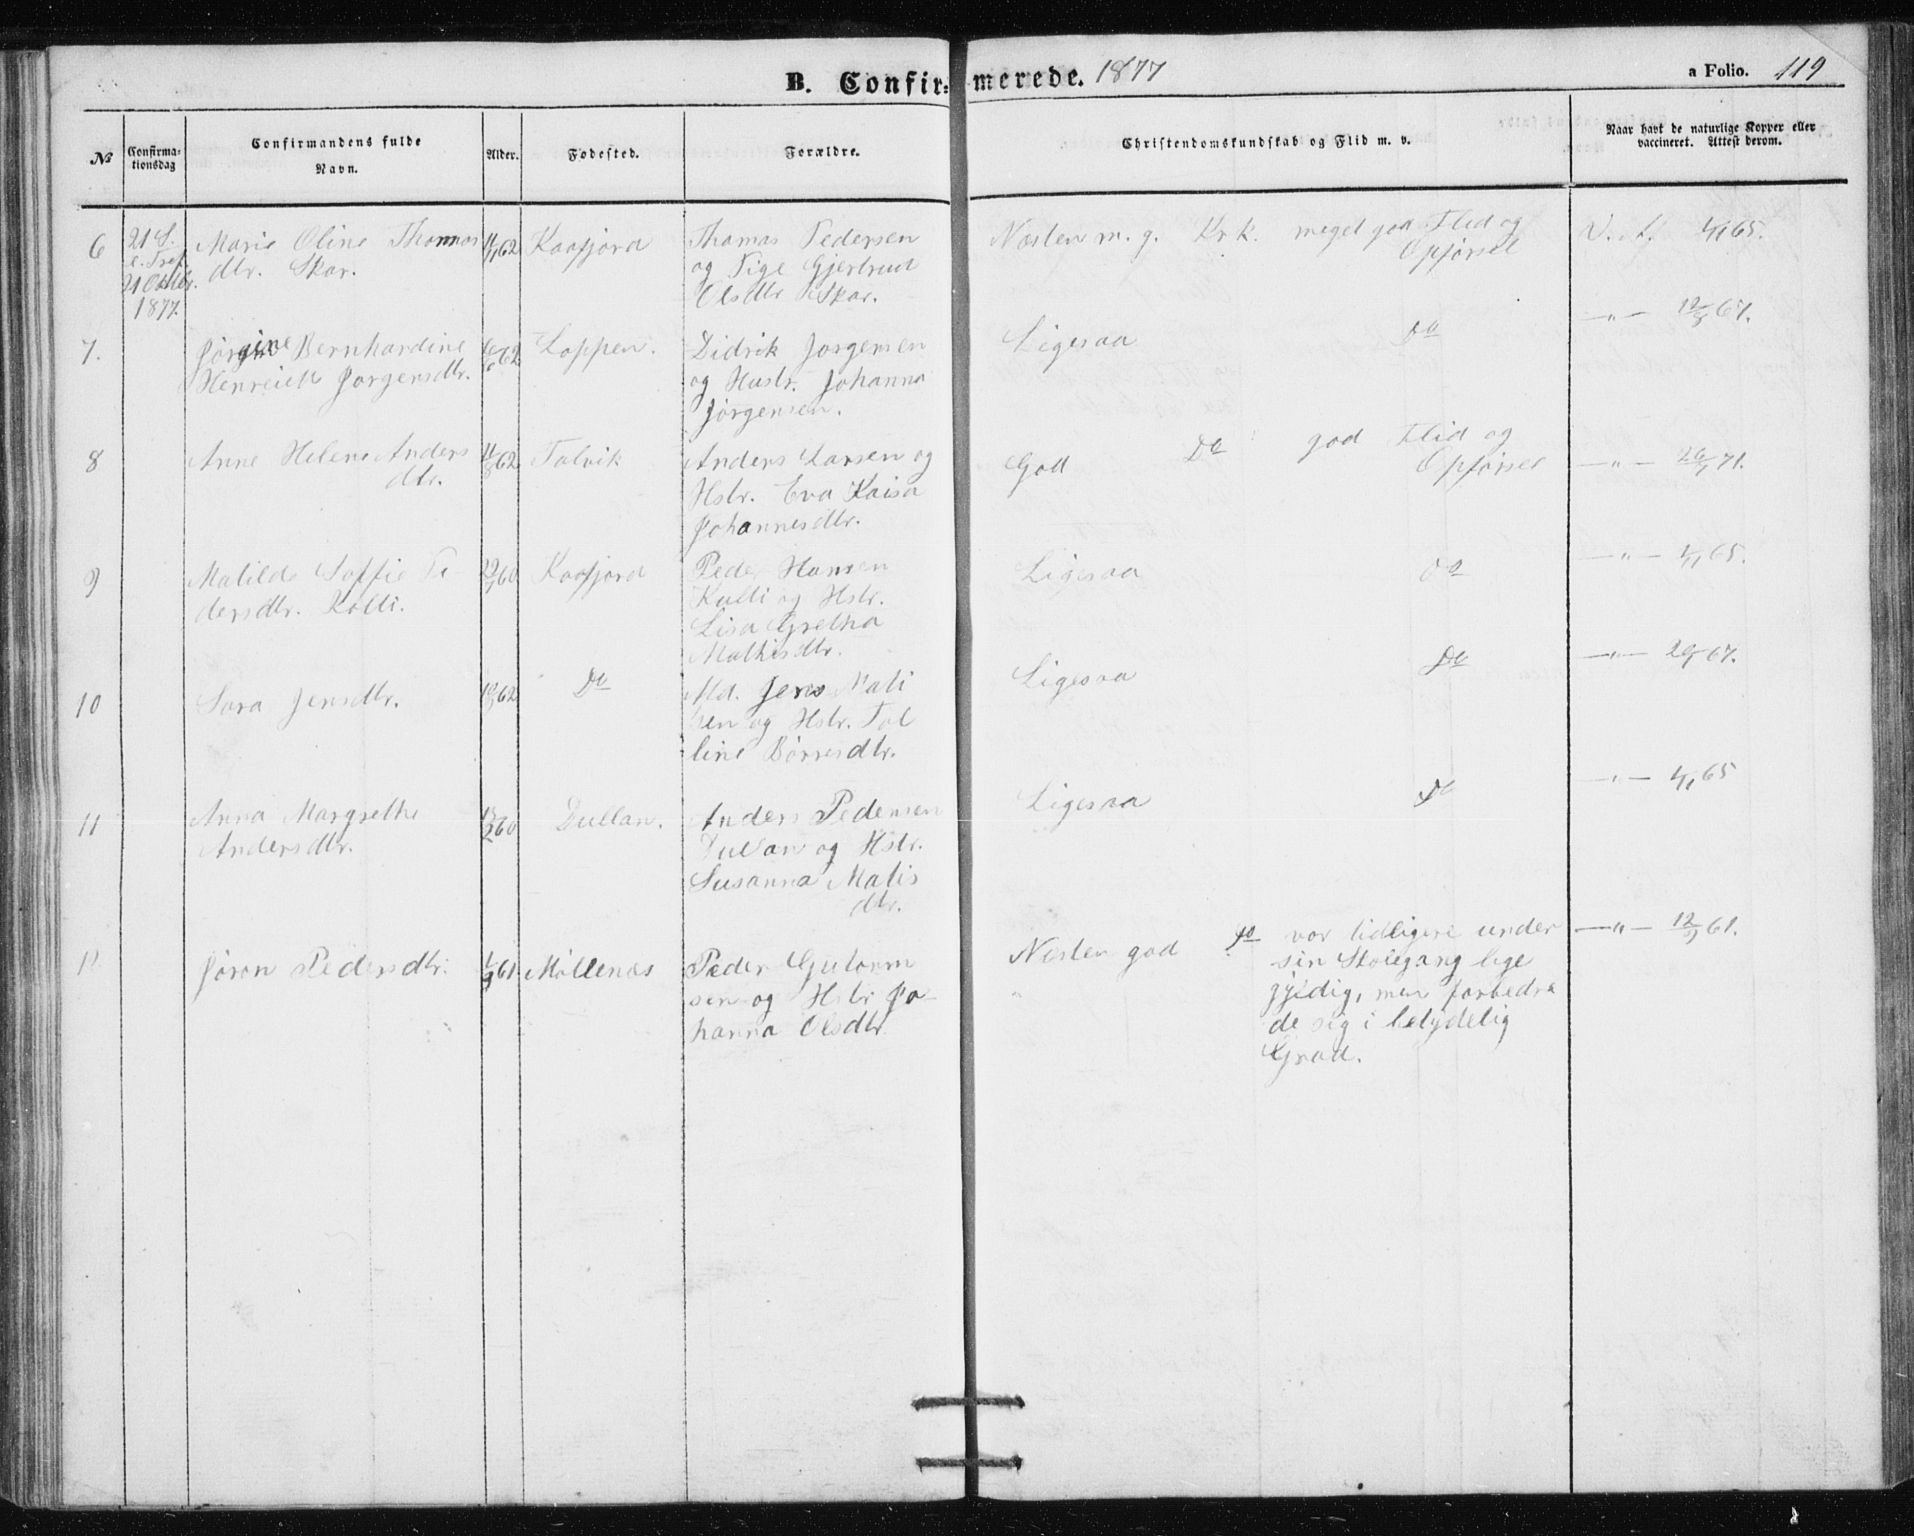 B. Confirmerede. 1877
a Folio. 119
No
Confirmationsdag
Confirmandens fulde Navn.
Alder.
Fødested.
Forældre.
Christendomskundskab og Flid m. v.
Naar havt de naturlige Kopper eller vaccineret. Attest derom.
6
21 S.
e. Tref.
21 Oktbr.
1877.
Marie Oline Thomas
dtr. Skar.
62
Kaafjord
Thomas Pedersen
og Pige Gjertrud
Olsdtr Skar.
Næsten m. g. Kr. k. meget god Flid og
Opførsel
V. A. 4/1 65.
7.
Jørgine Bernhardine
Henreich Jørgensdtr.
62
Loppen.
Didrik Jørgensen
og Hustr. Johanna
Jørgensen.
Ligesaa
Do
—"— 12/8 67.
8
Anne Helene Anders
dtr.
11/8 62
Talvik
Anders Larsen og
Hstr. Eva Kaisa
Johannesdtr.
God
Do
god Flid og
Opførsel
—"— 26/ 71.
9
Matilde Soffie Pe
dersdtr. Kolti.
60
Kaafjord
Peder Hansen
Kulti og Hstr.
Lisa Gretha
Mathisdtr.
Ligesaa
Do
—"— 4/1 65.
10
Sara Jensdtr.
62
Do
Md. Jens Mati
sen og Hstr. Tol
line Børresdtr.
Ligesaa
Do
—"— 67.
11
Anna Margrethe
Andersdtr.
60
Dullan.
Anders Pedersen
Dullan og Hstr.
Susanna Matis
dtr.
Ligesaa
Do
—"— 4/1 65
12
Jøron Pedersdtr.
61
Møllenæs
Peder Gutorm
sen og Hstr Jo-
hanna Olsdtr
Næsten god
Do
var tidligere under
sin Skolegang lige
gyldig, men forbedre
de sig i betydelig
Grad.
—"— 12/9 61.